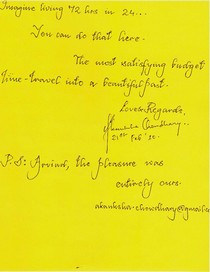 Imagine living 72 hrs in 24...
You can do that here.
The most satisfying budget
time-travel into a beautiful past.
Love & Regards,
Akanksha Chowdhary
21st Feb'
P.S: Arvind, the pleasure was
entirely ours.
akanksha.chowdhary@gmail.co